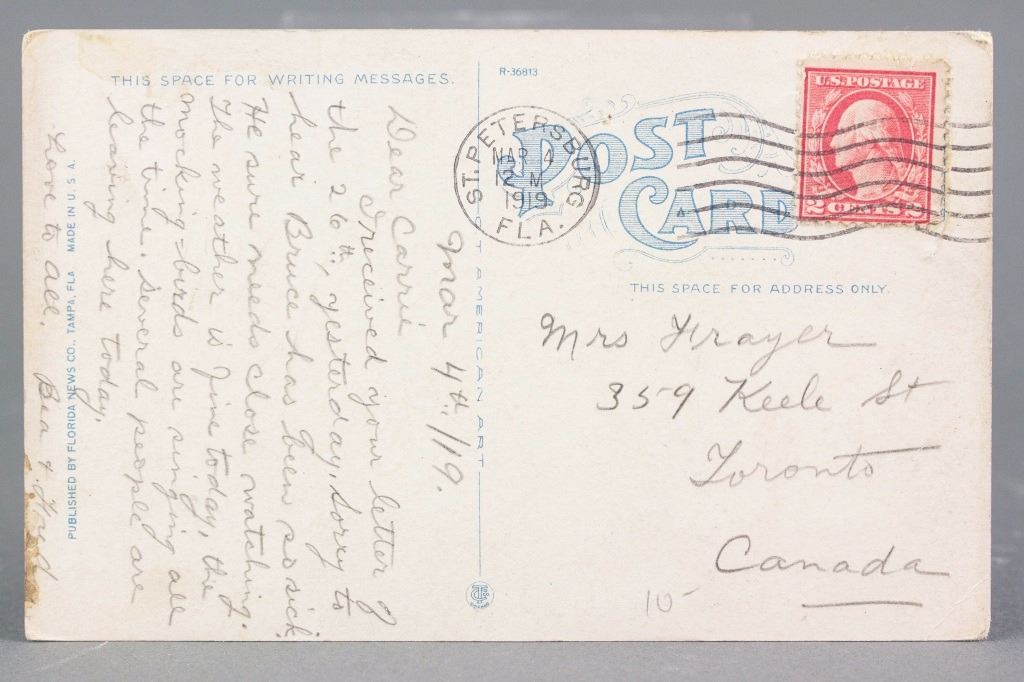 THIS SPACE FOR WRITING MESSAGES.
Mar 4th/19.
Dear Carrie
I received your letter of
the 26th, yesterday, Sorry to
hear Bruce has been so sick.
He sure needs close watching.
The weather is fine today, the
mocking-birds are singing all
the time. Several people are
leaving here today.
Love to all. Bea & Fred
PUBLISHED BY FLORIDA NEWS CO., TAMPA, FLA MADE IN U. S. A.
R-36813
POST CARD
ST. PETERSBURG
MAR 4
12 M
1919
FLA.
U.S. POSTAGE
2 CENTS 2
ST AMERICAN ART
THIS SPACE FOR ADDRESS ONLY.
Mrs Frayer
359 Keele St
Toronto
Canada
10-